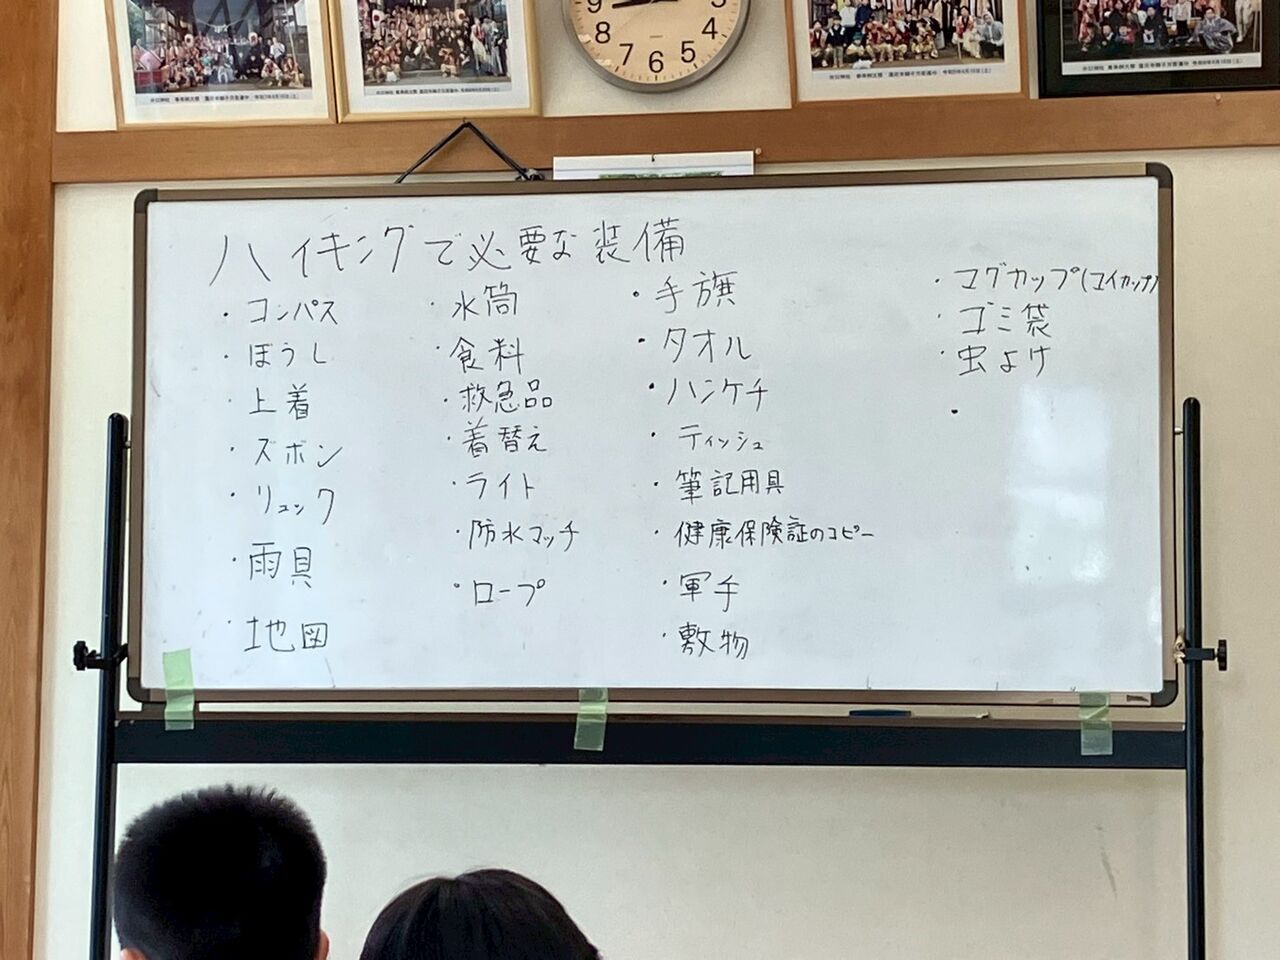 9
8
7
6
5
4
3
ハイキングで必要な装備
・コンパス
・ぼうし
・上着
・ズボン
・リュック
・雨具
・地図
・水筒
・食料
・救急品
・着替え
・ライト
・防水マッチ
・ロープ
・手旗
・タオル
・ハンケチ
・ティッシュ
・筆記用具
・健康保険証のコピー
・軍手
・敷物
・マグカップ(マイカップ)
・ゴミ袋
・虫よけ
・